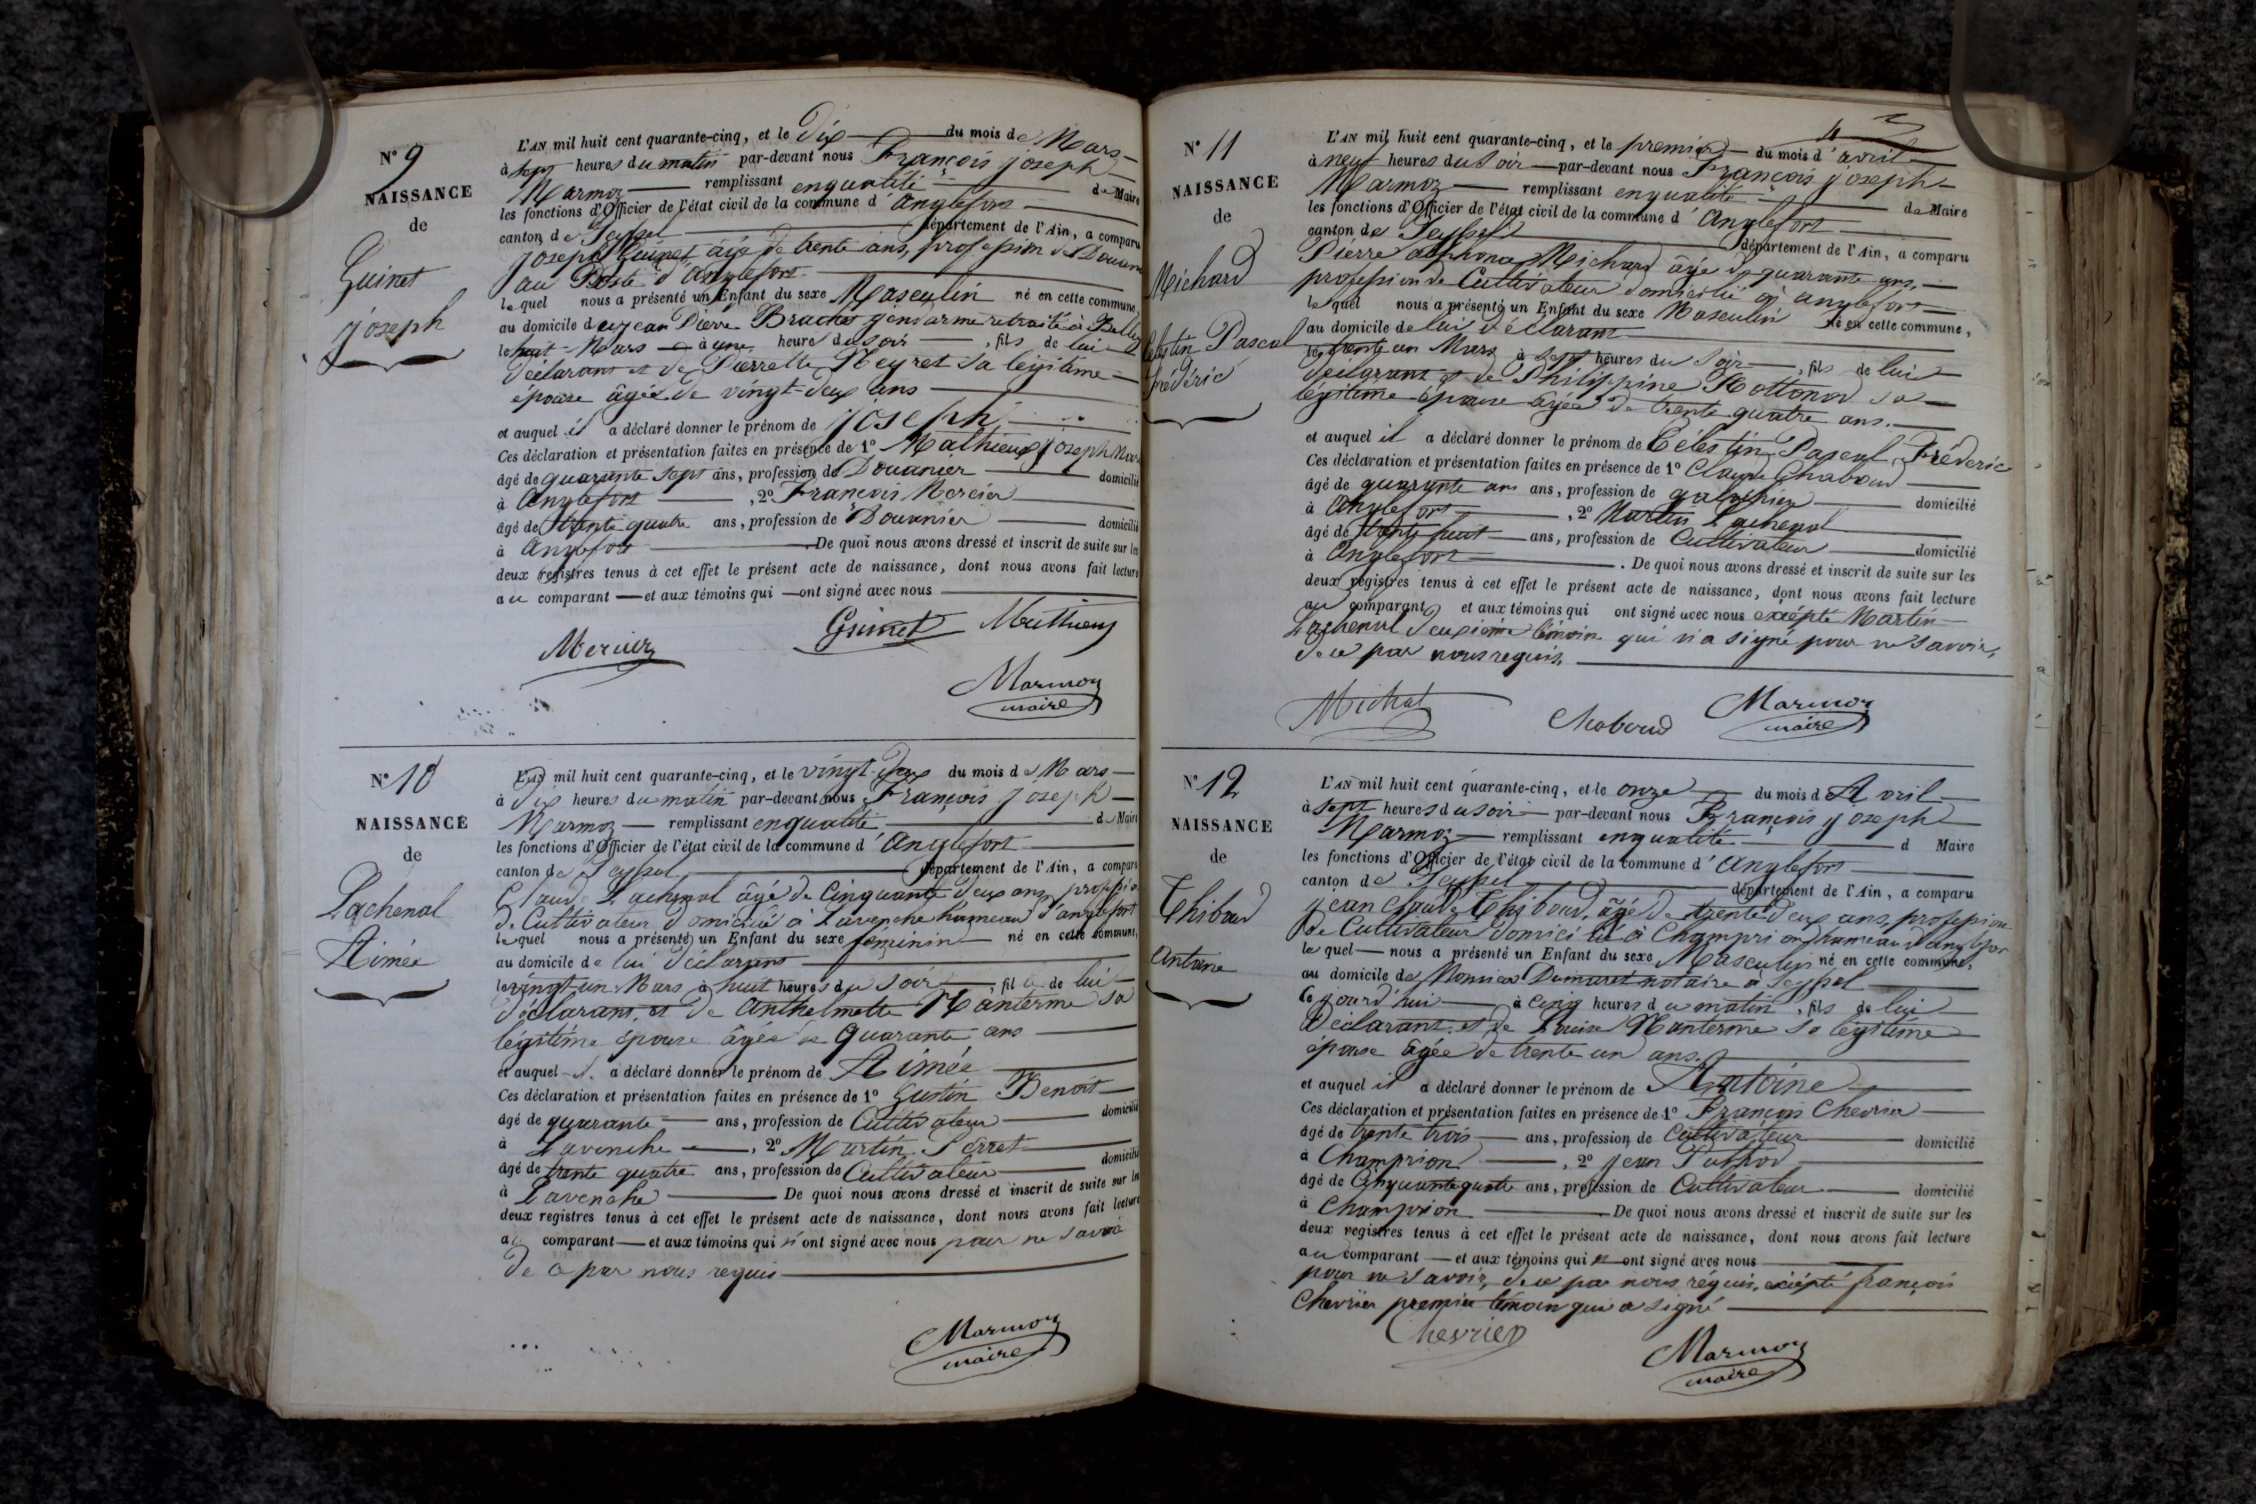 N° 9
NAISSANCE
de
Guinet
joseph
L'AN mil huit cent quarante-cinq, et le dix du mois de Mars
à sept heures du matin par-devant nous François joseph
Marmoz remplissant en qualité de Maire
les fonctions d'Officier de l'état civil de la commune d'anglefort
canton de Seyssel département de l'Ain, a comparu
joseph Guinet âgé de trente ans, profession de Douanier
au Poste d'anglefort
le quel nous a présenté un Enfant du sexe Masculin né en cette commune,
au domicile de jean Pierre Brachet gendarme retraité à Belley
le huit Mars à une heure du soir, fils de lui
déclarant et de Pierrette Neyret sa légitime
épouse âgée de vingt-deux ans
et auquel il a déclaré donner le prénom de joseph
Ces déclaration et présentation faites en présence de 1° Mathieux joseph
âgé de quarante sept ans, profession de Douanier domicilié
à anglefort, 2° François Mercier
âgé de trente quatre ans, profession de Douanier domicilié
à anglefort De quoi nous avons dressé et inscrit de suite sur les
deux registres tenus à cet effet le présent acte de naissance, dont nous avons fait lecture
au comparant et aux témoins qui ont signé avec nous
Mercier Guinet Mathieux
Marmoz
maire
N° 10
NAISSANCE
de
Lachenal
Aimée
L'AN mil huit cent quarante-cinq, et le vingt-deux du mois de Mars
à dix heures du matin par-devant nous François joseph
Marmoz remplissant en qualité de Maire
les fonctions d'Officier de l'état civil de la commune d'anglefort
canton de Seyssel département de l'Ain, a comparu
Claude Lachenal âgé de cinquante deux ans profession
de Cultivateur domicilié à Lavenche hameau d'anglefort
le quel nous a présenté un Enfant du sexe féminin né en cette commune,
au domicile de lui déclarant
le vingt un Mars à huit heures du soir, fille de lui
déclarant et de anthelmette Manterme sa
légitime épouse âgée de quarante ans
et auquel il a déclaré donner le prénom de Aimée
Ces déclaration et présentation faites en présence de 1° Gustin Benoit
âgé de quarante ans, profession de Cultivateur domicilié
à Lavenche, 2° Martin Serret
âgé de trente quatre ans, profession de Cultivateur domicilié
à Lavenche De quoi nous avons dressé et inscrit de suite sur les
deux registres tenus à cet effet le présent acte de naissance, dont nous avons fait lecture
au comparant et aux témoins qui n'ont signé avec nous pour ne savoir
de ce par nous requis
Marmoz
maire
N° 11
NAISSANCE
de
Michard
Célestin Pascal
frédéric
L'AN mil huit cent quarante-cinq, et le premier du mois d'avril
à neuf heures du soir par-devant nous François joseph
Marmoz remplissant en qualité de Maire
les fonctions d'Officier de l'état civil de la commune d'anglefort
canton de Seyssel département de l'Ain, a comparu
Pierre alphonce Michard âgé de quarante ans,
profession de Cultivateur domicilié à anglefort
le quel nous a présenté un Enfant du sexe Masculin né en cette commune,
au domicile de lui déclarant
le trente un Mars à sept heures du soir, fils de lui
déclarant et de Philippine Mottonod sa
légitime épouse âgée de trente quatre ans.
et auquel il a déclaré donner le prénom de Célestin, Pascal, Fréderic
Ces déclaration et présentation faites en présence de 1° Claude Chaboud
âgé de quarante ans ans, profession de domicilié
à anglefort, 2° Martin Lachenal
âgé de trente huit ans, profession de Cultivateur domicilié
à anglefort. De quoi nous avons dressé et inscrit de suite sur les
deux registres tenus à cet effet le présent acte de naissance, dont nous avons fait lecture
au comparant et aux témoins qui ont signé avec nous excépté Martin
Lachenal deuxième témoin qui n'a signé pour ne savoir,
de ce par nous requis.
Michal Chaboud Marmoz
maire
N° 12
NAISSANCE
de
Thiboud
Antoine
L'AN mil huit cent quarante-cinq, et le onze du mois d'Avril
à sept heures du soir par-devant nous François joseph
Marmoz remplissant en qualité d Maire
les fonctions d'Officier de l'état civil de la commune d'anglefort
canton de Seyssel département de l'Ain, a comparu
jean claude Thiboud, âgé de trente deux ans, profession
de Cultivateur domicilié à Champrion hameau d'anglefort
le quel nous a présenté un Enfant du sexe Masculin né en cette commune,
au domicile de Monsieur Dumarest notaire à Seyssel
ce jourd'hui à cinq heures du matin, fils de lui
déclarant et de Louise Manterme sa légitime
épouse âgée de trente un ans.
et auquel il a déclaré donner le prénom de Antoine
Ces déclaration et présentation faites en présence de 1° François Chevrier
âgé de trente trois ans, profession de Cultivateur domicilié
à Champrion, 2° jean Puthod
âgé de cinquante quatre ans, profession de Cultivateur domicilié
à Champrion De quoi nous avons dressé et inscrit de suite sur les
deux registres tenus à cet effet le présent acte de naissance, dont nous avons fait lecture
au comparant et aux témoins qui n ont signé avec nous
pour ne savoir, de ce par nous réquis, excépté françois
Chevrier premier témoin qui a signé
Chevrier
Marmoz
maire